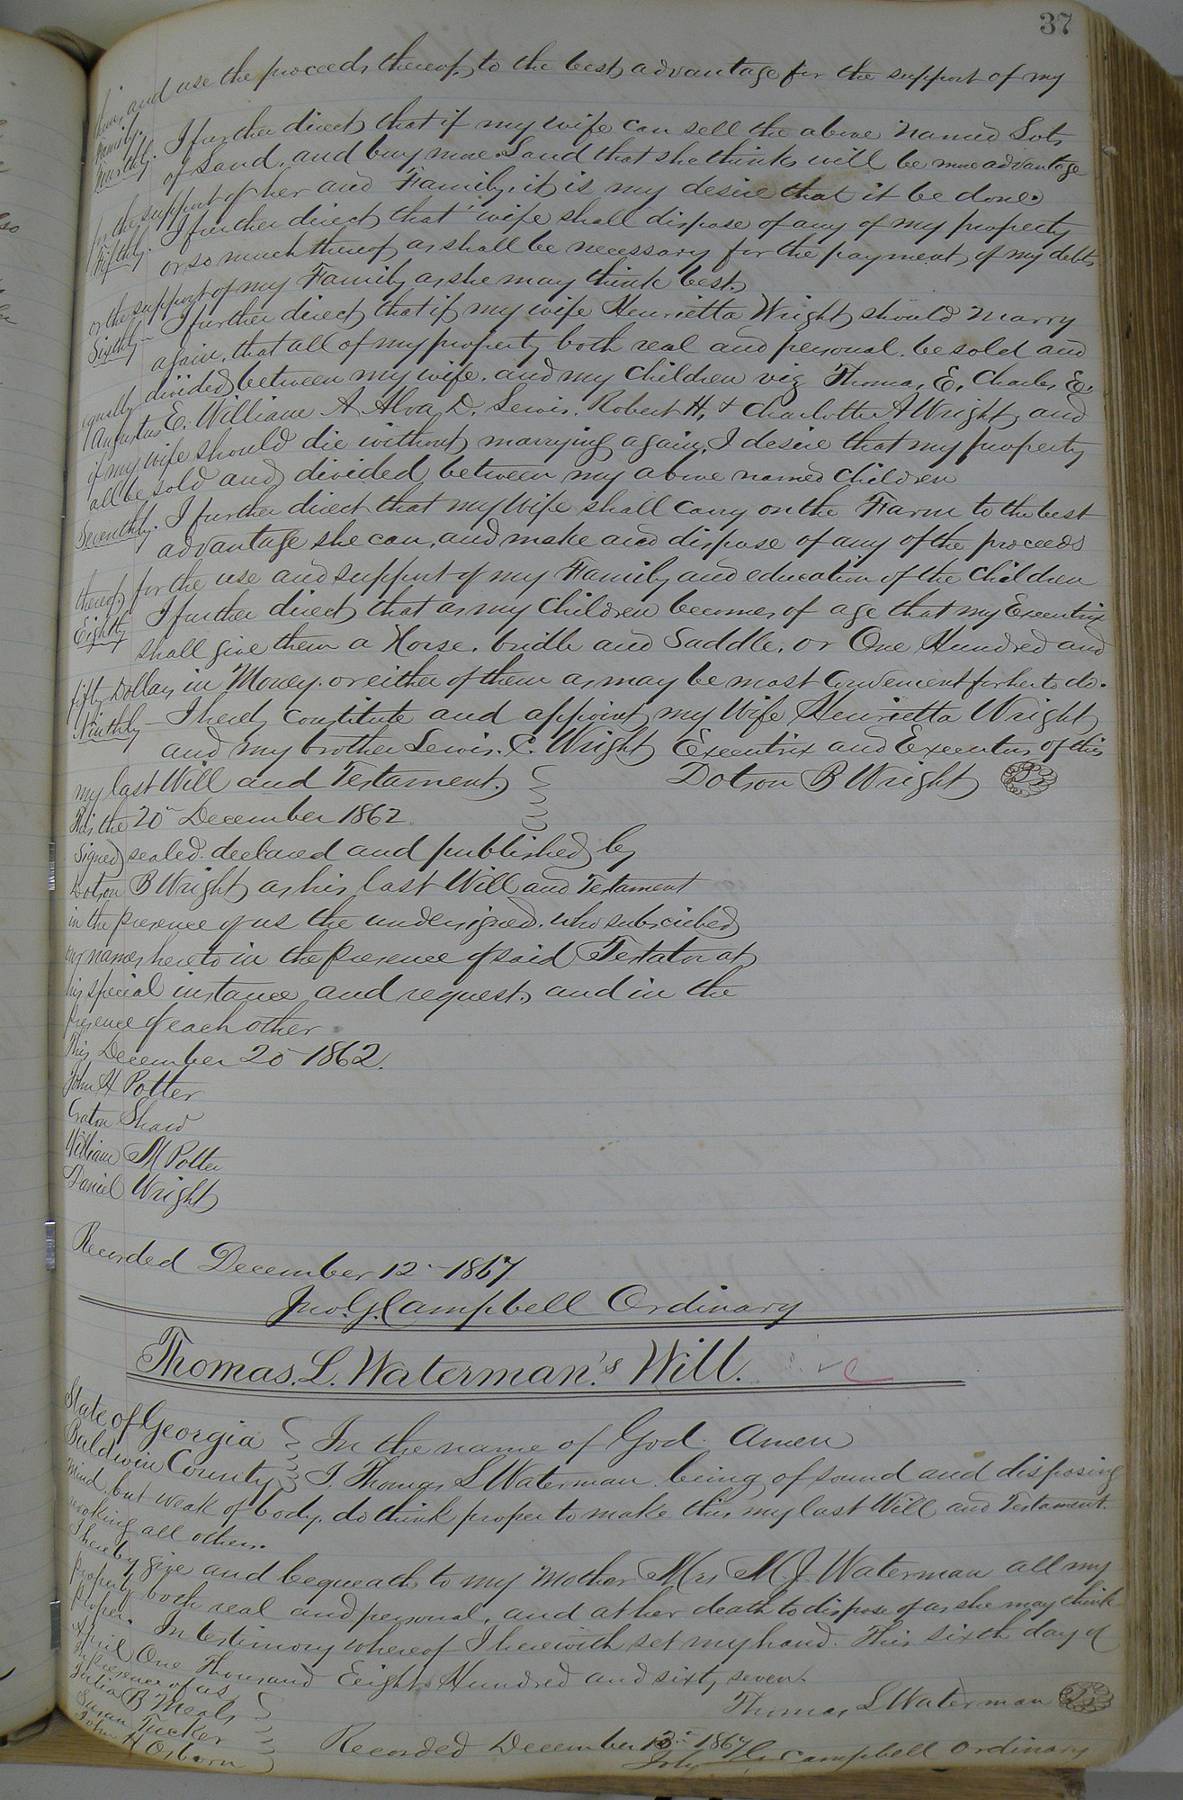 37
him, and use the proceeds thereof, to the best advantage for the support of my
Family.
Fourthly. I further direct, that if my wife can sell the above named Lots
of Land, and buy more Land that she thinks will be more advantage
for the support of her and Family, it is my desire that it be done.
Fifthly. I further direct that wife shall dispose of any of my property
or so much thereof, as shall be necessary for the payment, of my debts
or the support of my Family as she may think best.
Sixthly - I further direct, that if my wife Henrietta Wright, should marry
again, that all of my property, both real and personal, be sold and
equally divided, between my wife, and my children viz Thomas, E, Charles E.
Augustus E. William A Alva, D. Lewis, Robert H, & Charlotte A Wright, and
if my wife should die without, marrying again, I desire that my property
all be sold and divided, between my above named children
Seventhly. I further direct that my wife shall carry on the Farm to the best
advantage she can, and make and dispose of any of the proceeds
thereof, for the use and support of my Family, and education of the children
Eighth I further direct, that as my children becomes of age that my Executrix
shall give them a Horse, bridle and Saddle, or One Hundred and
fifty Dollars in Money. or either of them as may be most Convenient for her to do.
Ninthly - I hereby constitute and appoint, my Wife Henrietta Wright,
and my brother Lewis. C. Wright Executrix and Executor, of this
my last Will and Testament,
Dotson B Wright
This the 20th December 1862
Signed, sealed. declared and published, by
Dotson B Wright, as his last Will and Testament
in the presence of us the undersigned. who subscribed
our names hereto in the presence of said Testator at
his special instance and request, and in the
presence of each other
This December 20th 1862.
John H Potter
Craton Shaw
William M Potter
Daniel Wright
Recorded December 12th 1867
Jno. G. Campbell Ordinary
Thomas. L. Waterman's Will.
State of Georgia In the name of God Amen
Baldwin County I. Thomas L Waterman being of sound and disposing
mind, but weak of body. do think proper to make this my last Will and Testament.
revoking all others.
I hereby give and bequeath to my Mother Mrs M. J. Waterman all my
property both real and personal, and at her death to dispose of as she may think
proper. In testimony whereof I herewith set my hand. This sixth day of
April One Thousand Eight Hundred and sixty seven.
In presence of us
Thomas L Waterman
Julia B Meals
Susan Tucker
John H Osborn
Recorded December 13th 1867
John G Campbell Ordinary